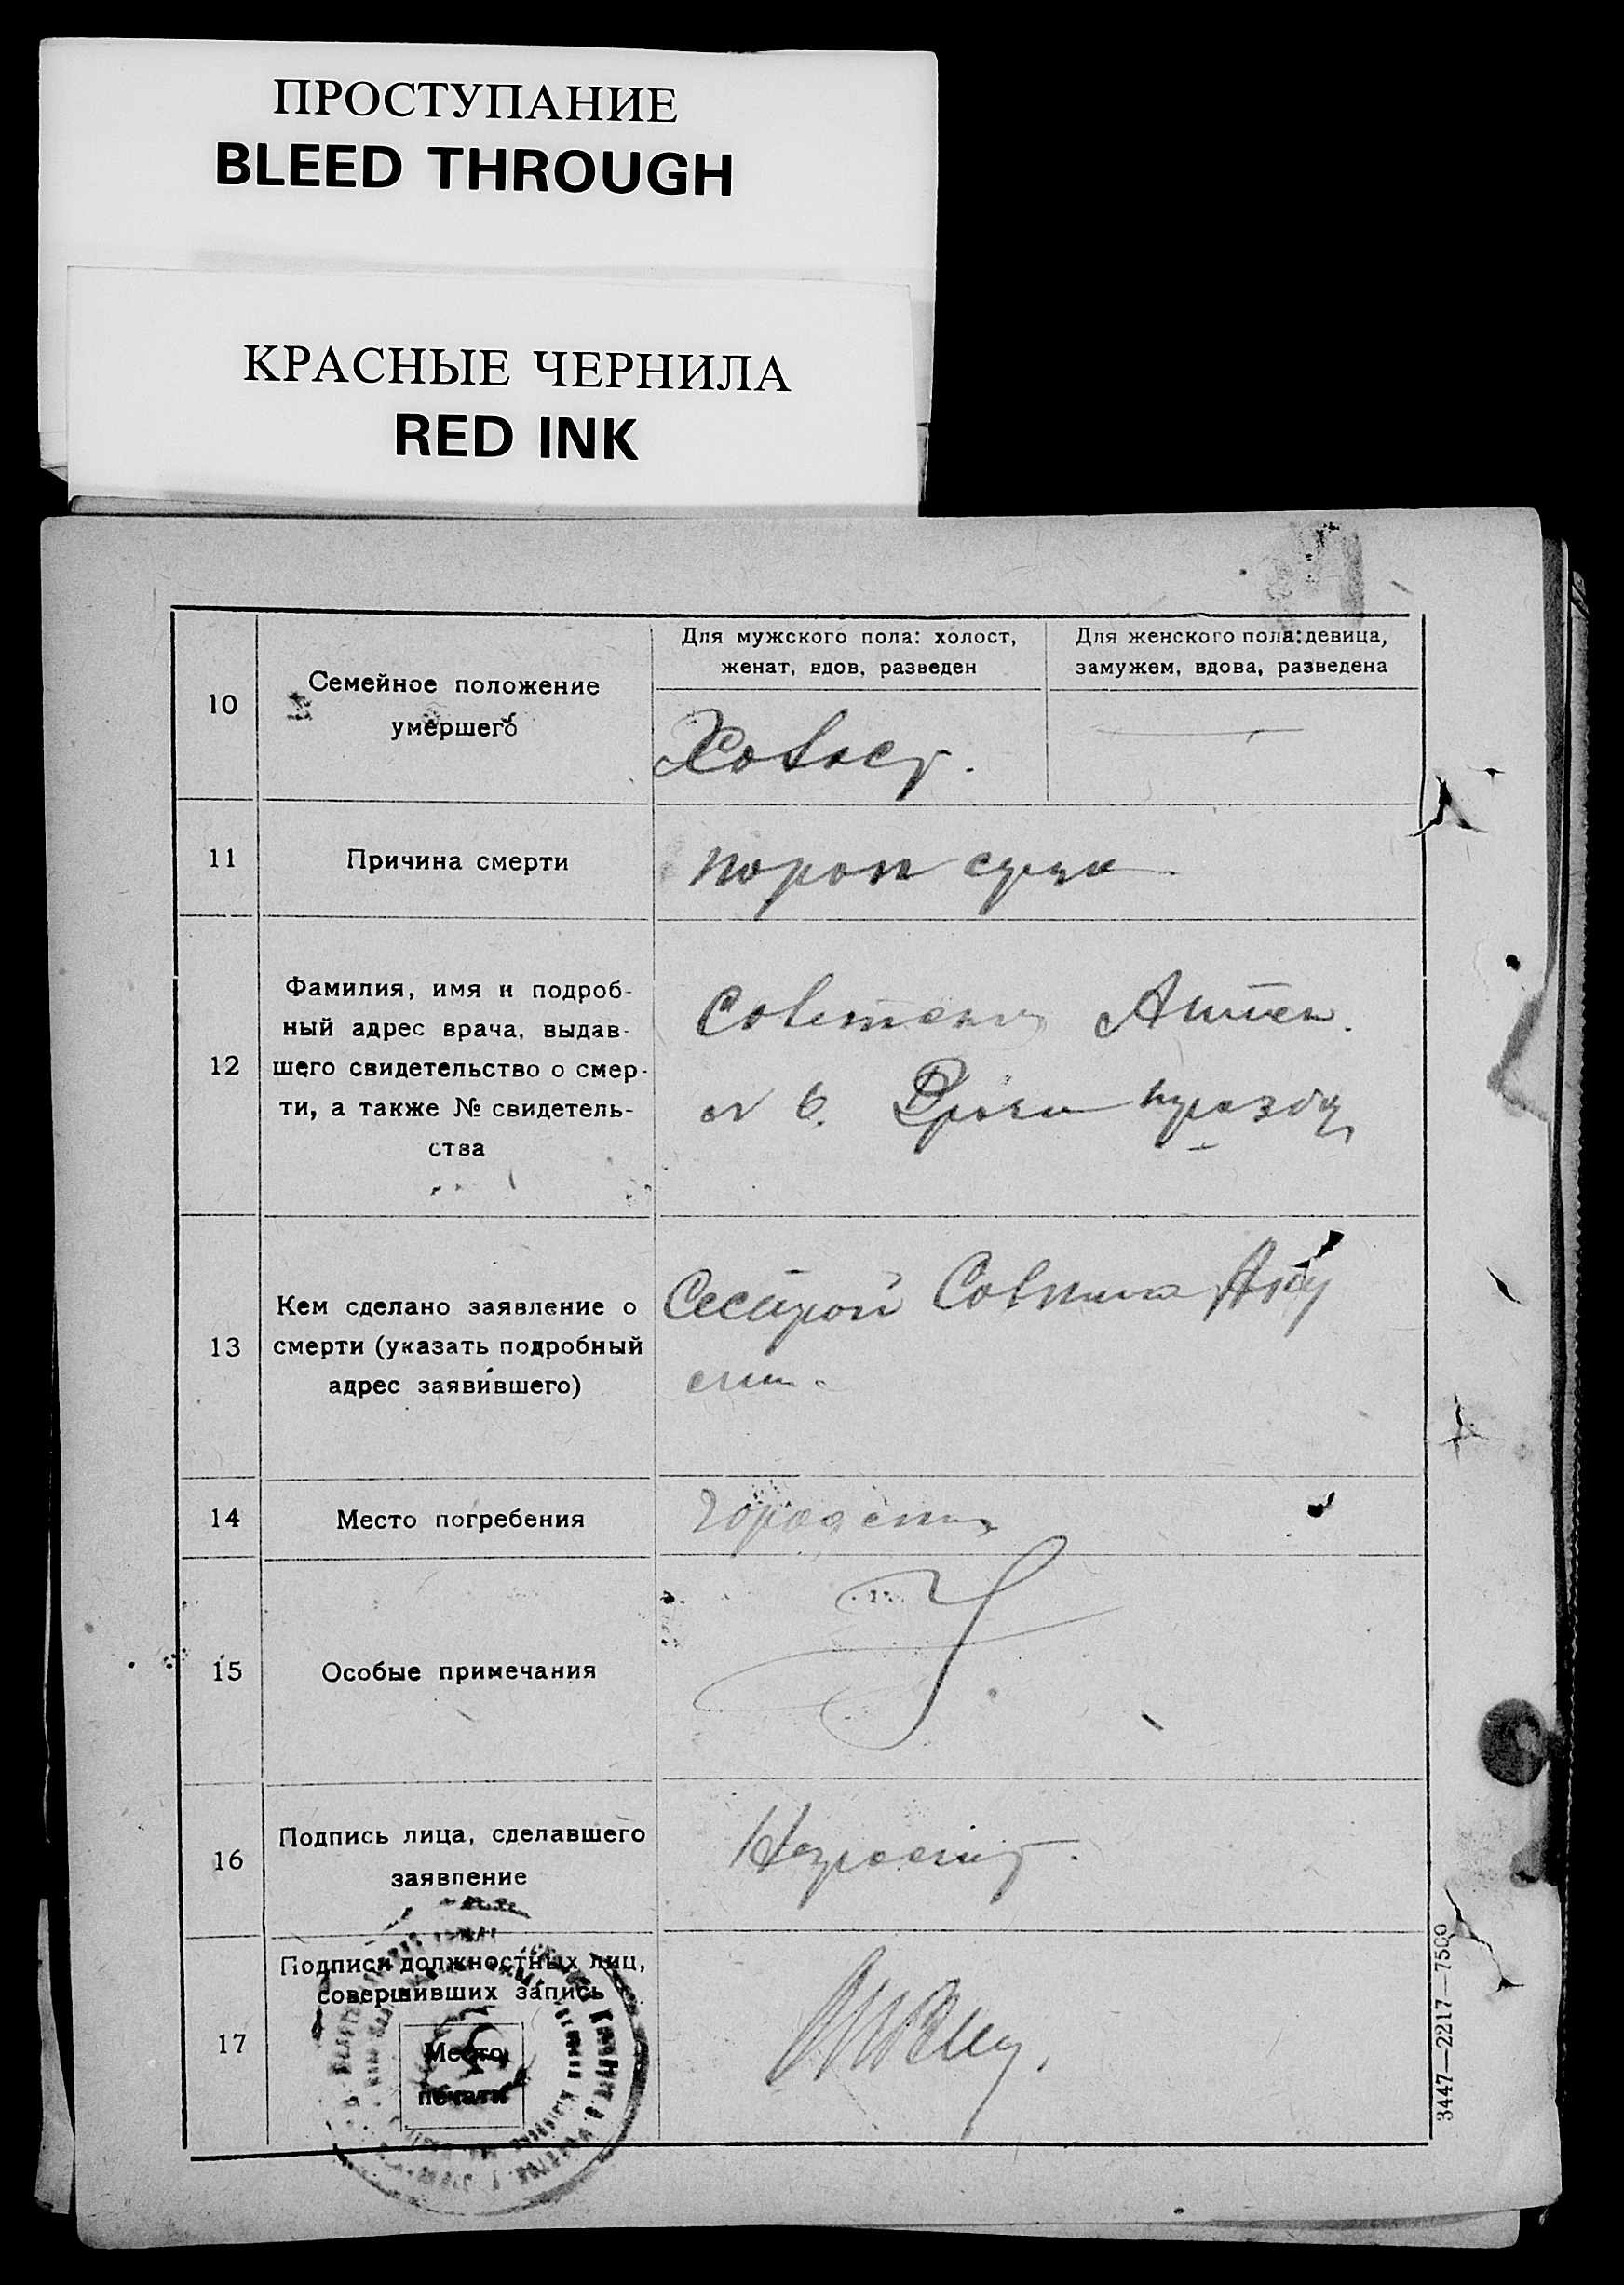 ПРОСТУПАНИЕ
BLEED THROUGH
КРАСНЫЕ ЧЕРНИЛА
RED INK
10
Семейное положение
умершего
Для мужского пола: холост,
женат, вдов, разведен
Для женского пола: девица,
замужем, вдова, разведена
Холост.
11
Причина смерти
порок
12
Фамилия, имя и подроб-
ный адрес врача, выдав-
шего свидетельство о смер-
ти, а также № свидетель-
ства
N 6.
13
Кем сделано заявление о
смерти (указать подробный
адрес заявившего)
Сестрой
14
Место погребения
15
Особые примечания
16
Подпись лица, сделавшего
заявление
17
Подписи должностных лиц,
совершивших запись
Место
печати
3447—2217—7500